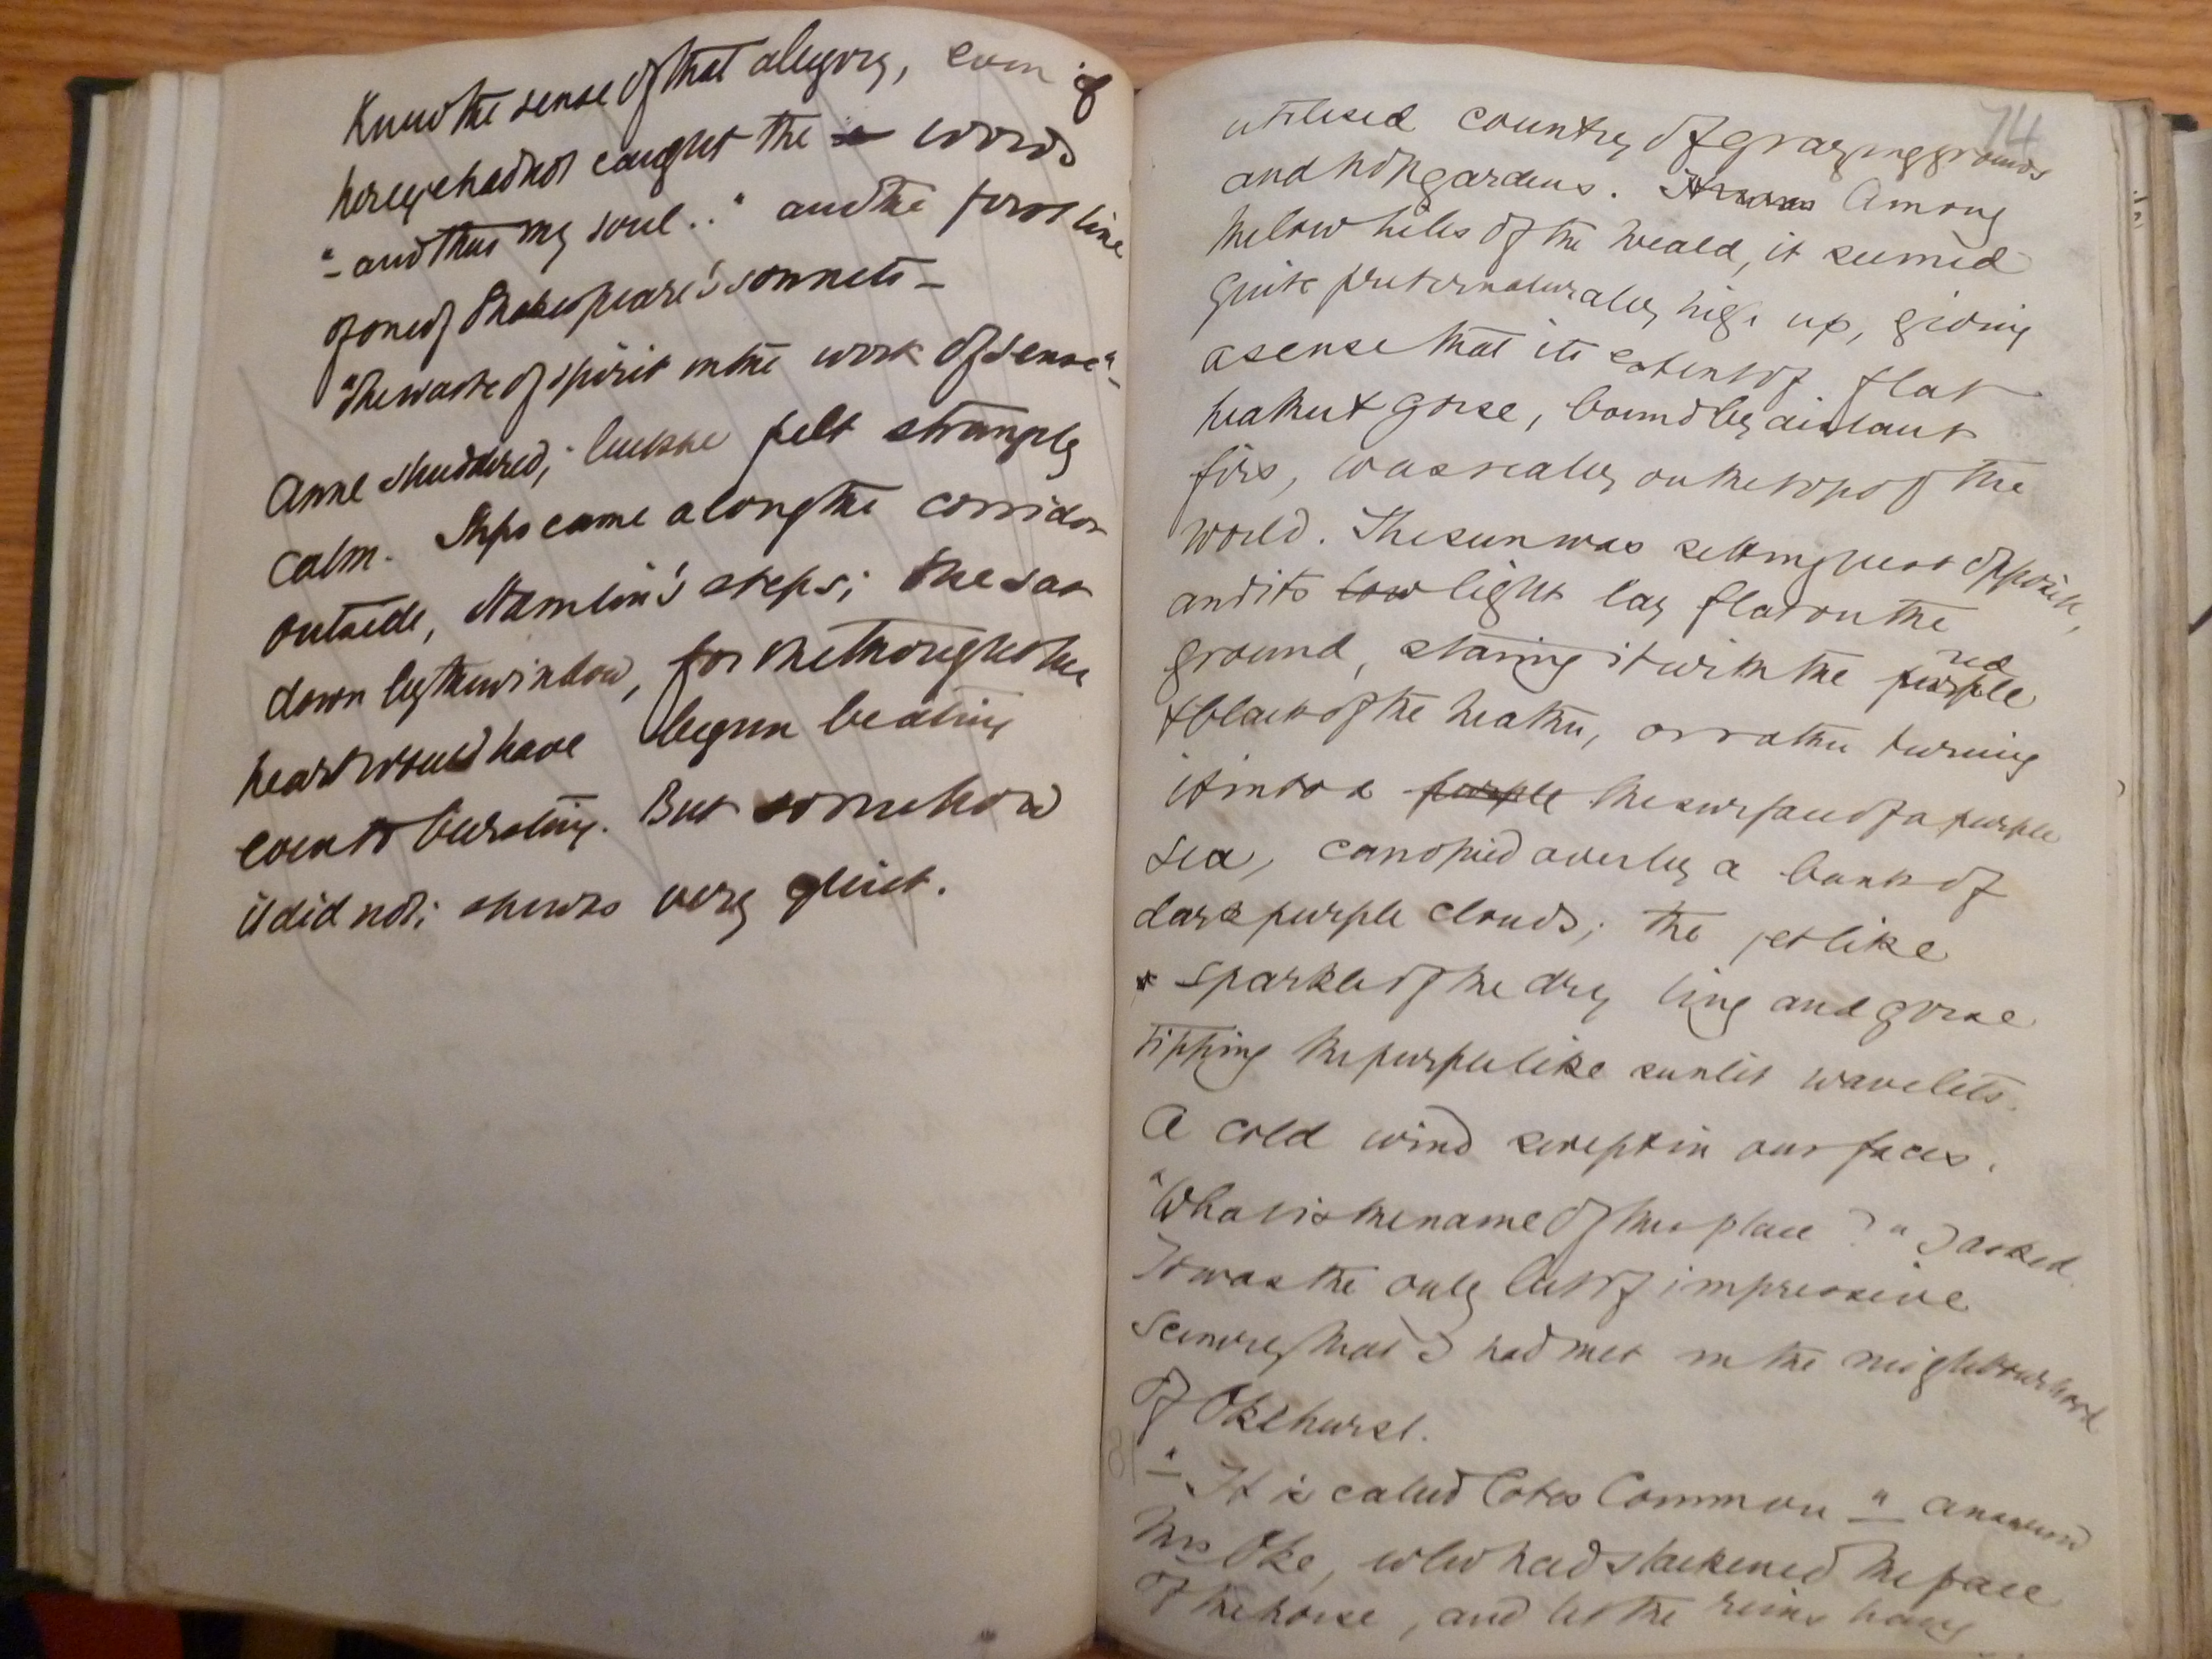 Knew the sense of that allegory, even if
her eye had not caught the words
"- and thus my soul.." and the first line
of one of Shakespeare's sonnets -
"The waste of spirit in the work of sense" -
Anne shuddered; but she felt strangely
calm. Steps came along the corridor
outside, Hamlin's steps; she sat
down by the window, for she thought her
heart would have begun beating
even to bursting. But somehow
it did not; she was very quiet.
74
utilised country of grazing grounds
and hop gardens. It was Among
the low hills of the Weald, it seemed
quite preternaturally high up, giving
a sense that its extent of flat
heather & gorse, bound by distant
firs, was really on the top of the
world. The sun was setting just opposite,
and its low light lay flat on the
ground, staining it with the purple red
& black of the heather, or rather turning
it into a purple the surface of a purple
sea, canopied over by a bank of
dark purple clouds; the jet like
sparkle of the dry ling and gorse
tipping the purple like sunlit wavelets.
A cold wind swept in our faces.
"What is the name of this place?" I asked.
It was the only bit of impressive
scenery that I had met in the neighbourhood
of Okehurst.
"- It is called Cotes Common" - answered
Mrs Oke, who had slackened the pace
of the horse, and let the reins hang